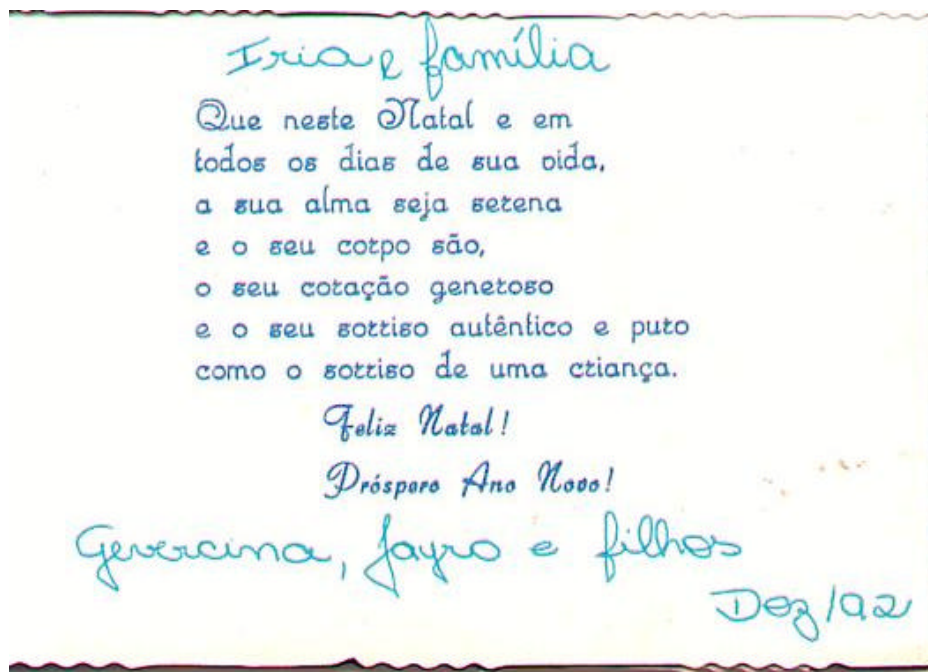 Iria e família
Que neste Natal e em
todos os dias de sua vida,
a sua alma seja serena
e o seu corpo são,
o seu coração generoso
e o seu sorriso autêntico e puro
como o sorriso de uma criança.
Feliz Natal!
Próspero Ano Novo!
Gevercina, Jayro e filhos
Dez/92